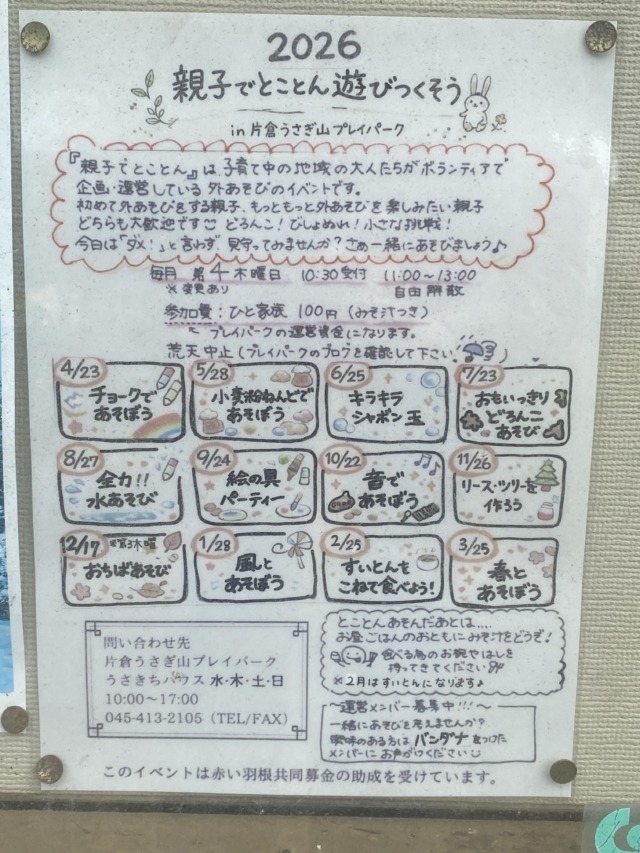 2026
親子でとことん遊びつくそう
in 片倉うさぎ山プレイパーク
『親子でとことん』は、子育て中の地域の大人たちがボランティアで
企画・運営している外あそびのイベントです。
初めて外あそびをする親子、もっともっと外あそびを楽しみたい親子
どちらも大歓迎です どろんこ！びしょぬれ！小さな挑戦！
今日は「ダメ！」と言わず 見守ってみませんか？さぁ一緒にあそびましょう♪
毎月 第4木曜日 10:30受付 11:00〜13:00
※変更あり 自由解散
参加費：ひと家族 100円（みそ汁つき）
プレイパークの運営資金になります。
荒天中止（プレイパークのブログを確認して下さい）
4/23
チョークで
あそぼう
5/28
小麦粉ねんどで
あそぼう
6/25
キラキラ
シャボン玉
7/23
おもいっきり
どろんこ
あそび
8/27
全力!!
水あそび
9/24
絵の具
パーティー
10/22
音で
あそぼう
11/26
リース・ツリーを
作ろう
12/17
※第3木曜
おちばあそび
1/28
風と
あそぼう
2/25
すいとんを
こねて食べよう！
3/25
春と
あそぼう
問い合わせ先
片倉うさぎ山プレイパーク
うさきちハウス 水・木・土・日
10:00〜17:00
045-413-2105（TEL/FAX）
とことんあそんだあとは....
お昼ごはんのおともにみそ汁をどうぞ！
食べる為のお椀やはしを
持ってきてください
※2月はすいとんになります♪
〜運営メンバー募集中!!!〜
一緒にあそびを考えませんか？
興味のある方は バンダナをつけた
メンバーにお声がけください
このイベントは赤い羽根共同募金の助成を受けています。